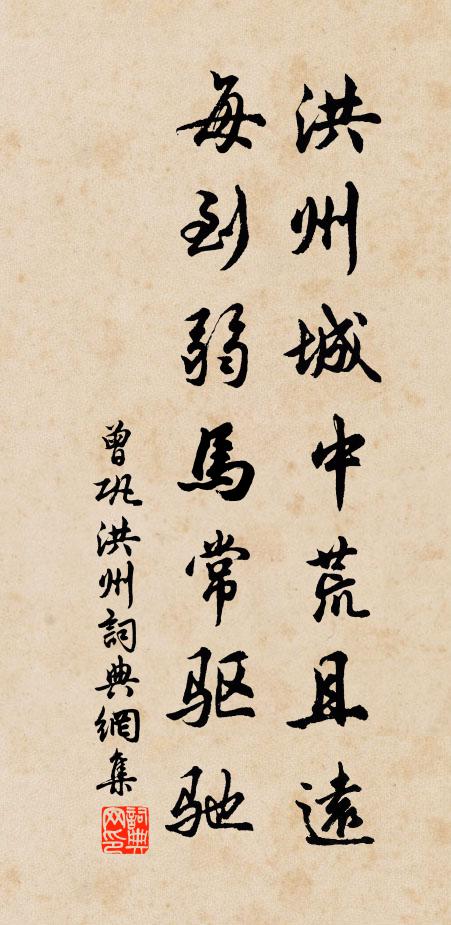 洪州城中荒且遠
每到弱馬常驱馳
曾巩洪州詞典網集
詞典网印